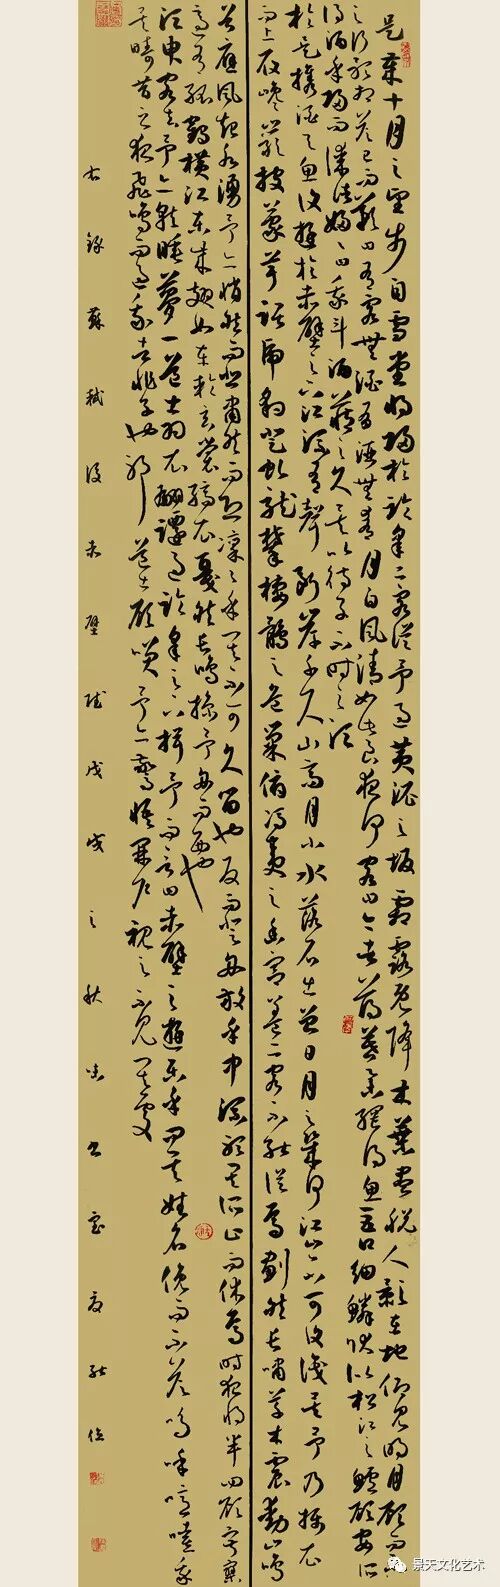 是歲十月之望步自雪堂將歸於臨皋二客從予過黃泥之坂霜露既降木葉盡脫人影在地仰見明月顧而樂
之行歌相答已而歎曰有客無酒有酒無肴月白風清如此良夜何客曰今者薄暮舉網得魚巨口細鱗狀似松江之鱸顧安所
得酒乎歸而謀諸婦婦曰我斗酒藏之久矣以待子不時之須
於是攜酒與魚復遊於赤壁之下江流有聲斷岸千尺山高月小水落石出曾日月之幾何江山不可復識矣予乃攝衣
而上履巉巖披蒙茸踞虎豹登虬龍攀棲鶻之危巢俯馮夷之幽宮蓋二客不能從焉劃然長嘯草木震動山鳴
谷應風起水湧予亦悄然而悲肅然而恐凜乎其不可久留也反而登舟放乎中流聽其所止而休焉時夜將半四顧寂寥
適有孤鶴橫江東來翅如車輪玄裳縞衣戛然長鳴掠予舟而西也
須臾客去予亦就睡夢一道士羽衣翩躚過臨皋之下揖予而言曰赤壁之遊樂乎問其姓名俛而不答嗚呼噫嘻我
矣疇昔之夜飛鳴而過我者非子也耶道士顧笑予亦驚悟開戶視之不見其處
右錄蘇軾後赤壁賦戊戌之秋
景天文化艺术